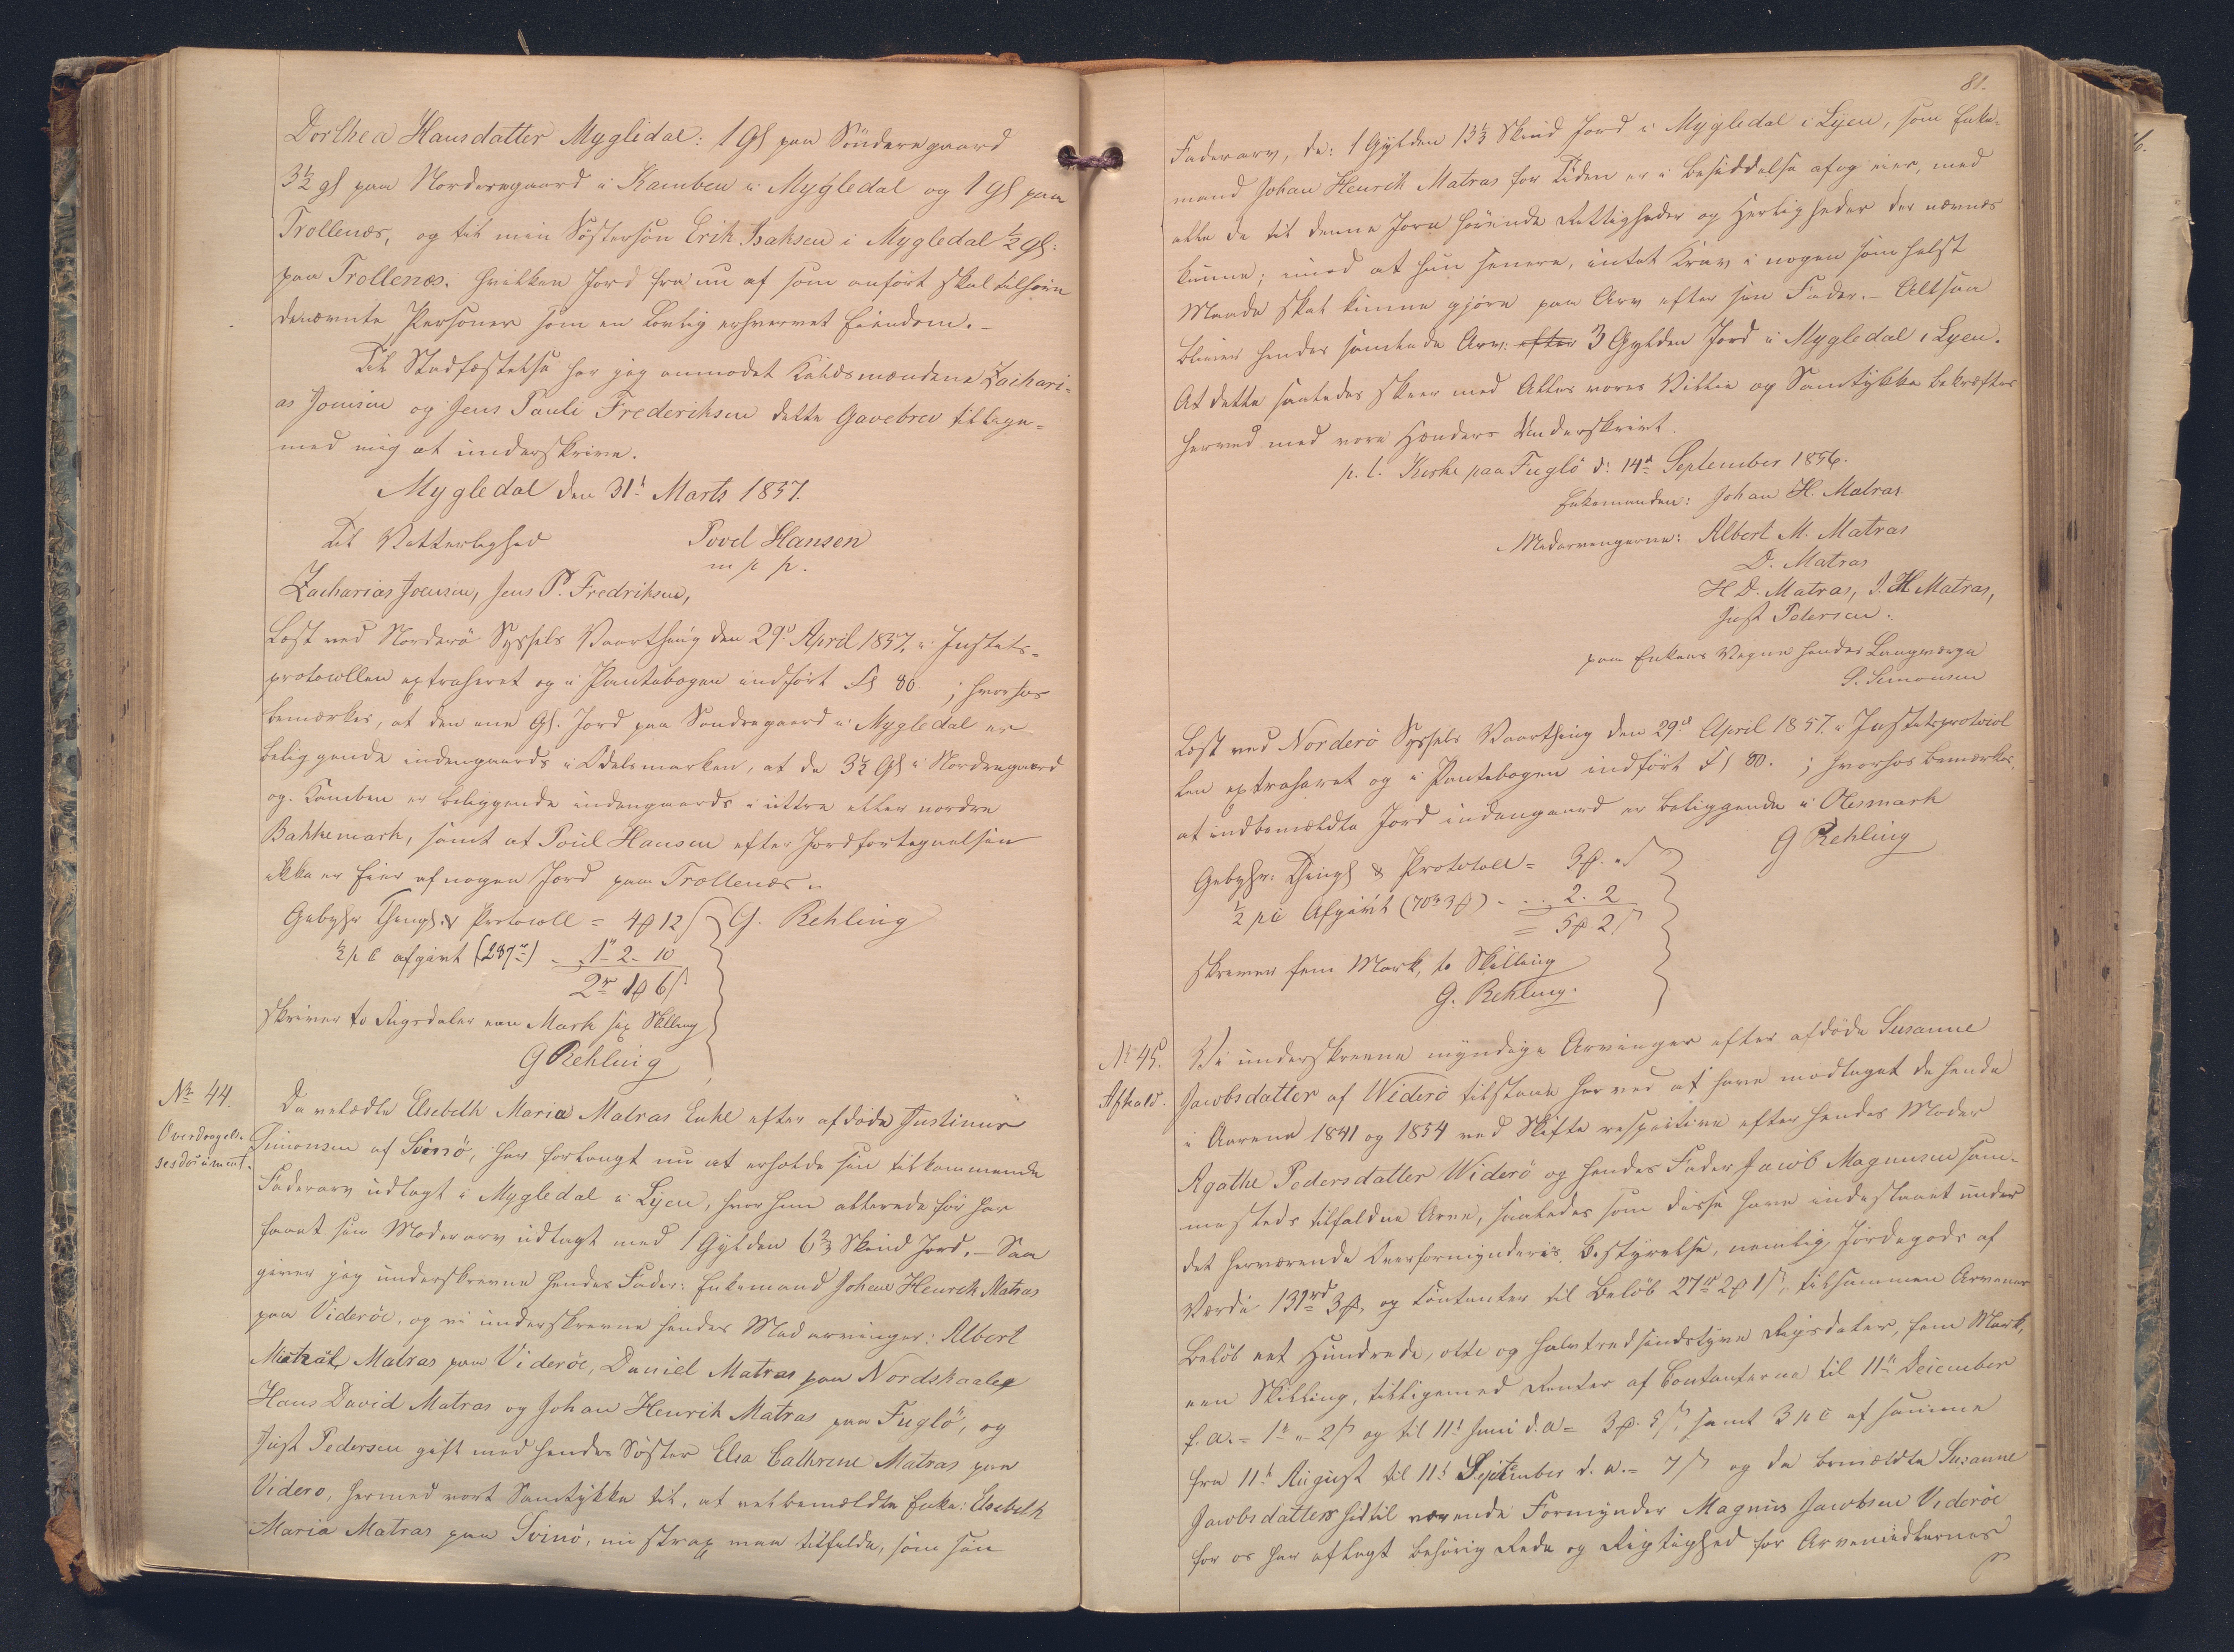 Dorthea Hansdatter Mygledal: 1 Gl paa Sönderegaard
3½ gl paa Norderegaard i Kamben i Mygledal og 1 Gl paa
Trollenæs, og til min Söstersön Erik Isaksen i Mygledal ½ Gl:
paa Trollenæs. hvilken Jord fra nu af som anfört skal tilhöre
benævnte Personer som en lovlig erhvervet Eiendom.-
Til Stadfæstelse har jeg anmodet Zachari-
as Joensen og Jens Pauli Frederiksen dette Gavebrev tillige-
med mig at underskrive.
Mygledal den 31t Marts 1857.
Til Vitterlighed Povel Hansen
m p p.
Zacharias Joensen, Jens P. Fredriksen,
Læst ved Norderö Syssels Vaarthing den 29d April 1857, i Justits-
protocollen extraheret og i Pantebogen indfört Fl 80 ; hvorhos
bemærkes, at den ene Gl. Jord paa Sondregaard i Mygledal er
beliggende indengaards i Odelsmarken, at de 3½ Gl i Nordregaard
og Kamben er beliggende indengaards i nordre
Bakkemark, samt at Poul Hansen efter Jordfortegnelsen
ikke er Eier af nogen Jord paa Trollenæs.
Gebyhr Thingl. & Protocoll = 4 12 G. Rehling
½ p C afgivt (237) - 1 - 2 - 10
2 1 6
skriver to Rigsdaler een Mark sex Skilling
G Rehling
No 44. Da velædle Elsebeth Maria Matras Enke efter afdöde Justinus
Overdragel-
sesdocument. Simonsen af Svinö, har forlangt nu at erholde sin tilkommende
Faderarv udlagt i Mygledal i Lyen, hvor hun allerede för har
faaet sin Moderarv udlagt med 1 Gylden 6⅔ Skind Jord.- Saa
giver jeg underskrevne hendes Fader: Enkemand Johan Henrik Matras
paa Videröe, og vi underskrevne hendes Medarvinger: Albert
Matras paa Videröe, Daniel Matras paa Nordskaale
Hans David Matras og Johan Henrik Matras paa Fuglö, og
Just Pedersen gift med hendes Söster Elsa Cathrine Matras paa
Videro, hermed vort Samtykke til, at velbemældte Enke: Elsebeth
Maria Matras paa Svinö, nu strax maa tilfalde, som sin
81.
Faderarv, de: 1 Gylden 13⅓ Skind Jord i Mygledal i Lyen, som Enke-
mand Johan Henrik Matras for Tiden er i Besiddelse af og eier, med
alle de til denne Jord hörende Rettigheder og Herligheder der nævnes
kunne; imod at hun senere, intet Krav i nogen somhelst
Maade skal kunne gjöre paa Arv efter sin Fader.- Altsaa
bliver hendes samlede Arv: efter 3 Gylden Jord i Mygledal i Lyen.
At dette saaledes skeer med Alles vores Villie og Samtykke bekræftes
herved med vore Hænders Underskrivt.
p. t. Kirke paa Fuglö d: 14d September 1856.
Enkemanden: Johan H. Matras.
Medarvingerne: Albert M. Matras
D. Matras
H D. Matras, J. H Matras,
Just Petersen.
paa Enkens Vegne hendes Laugværge
S. Simonsen
Læst ved Norderö Syssels Vaarthing den 29d April 1857. i Justitsprotocol
len extraheret og i Pantebogen indfört Fl 80. ; hvorhos bemærkes,
at indbemældte Jord indengaard er beliggende i Olesmark
G Rehling
Gebyhr: Thingl & Protocoll = 3
½ pC Afgivt (70 3) - . . 2. 2
= 5 2
skriver fem Mark, to Skilling
G. Rehling.
No 45. Vi underskrevne myndige Arvinger efter afdöde Susanne
Afkald. Jacobsdatter af Viderö tilstaae herved at have modtaget de hende
i Aarene 1841 og 1854 ved Skifte respective efter hendes Moder
Agathe Pedersdatter Widerö og hendes Fader Jacob Magnusen sam-
mesteds tilfaldne Arve, saaledes som disse have indestaaet under
det herværende Overformynderies Bestyrelse, nemlig Jordegods af
Værdi 131rd 3, og Contanter til Belöb 27rd 2 1, tilsammen Arvenes
Belöb eet Hundrede, otte og halvtredsindstyve Rigsdaler, fem Mark,
een Skilling, tilligemed Renter af Contanterne til 11te December
f. a. = 1 - 2 og til 11t Juni d. a = 3. 5, samt 3 p C af samme
fra 11t August til 11t September d. a. = 7 og da bemældte Susanne
Jacobsdatters hidtil værende Formynder Magnus Jacobsen Videröe
for os har aflagt behörig Rede og Rigtighed for Arvemidlernes